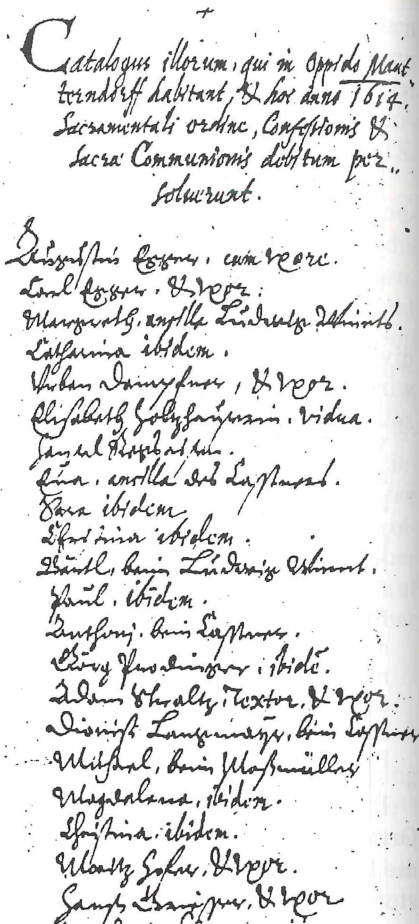 Catalogus illorum, qui in oppido Maut
terndorff habitant, & hoc anno 1614.
Sacramentali ordine, Confessionis &
sacræ Communionis debitum per„
soluerunt.
Augustin Egger, cum vxore.
Carl Egger, & vxor.
Margreth, ancilla Ludwig Wirrts.
Catharina ibidem.
Vrban Dampfner, & vxor.
Elisabeth Holzhauserin, vidua.
Eua, ancilla des Casstners.
Sara ibidem
Christina ibidem.
beim Ludwig Wirrt.
Paul, ibidem.
Anthoni, beim Casstner.
Georg Prodinger, ibidē.
Adam Textor, & vxor.
Dionisi beim Casstner
Michael, beim
Magdalena, ibidem.
Christina ibidem.
Moritz Hofer, & vxor.
Hanss & vxor